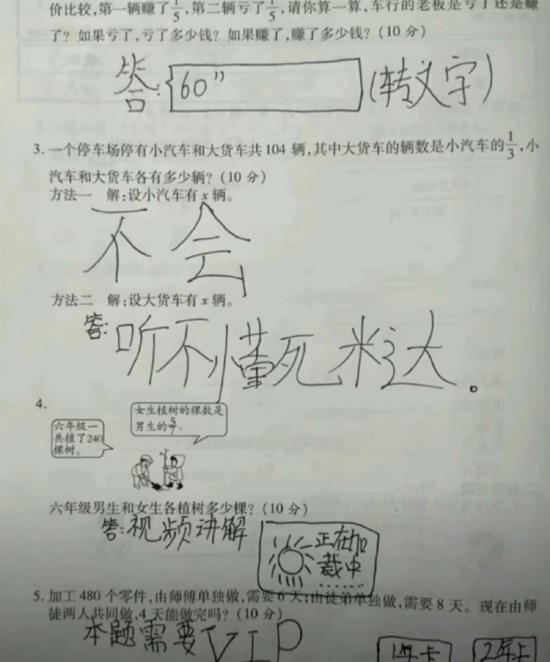 价比较,第一辆赚了1/5,第二辆亏了1/5,请你算一算,车行的老板是亏了还是赚
了?如果亏了,亏了多少钱?如果赚了,赚了多少钱?(10分)
答:60”(转义字)
3.一个停车场停有小汽车和大货车共104辆,其中大货车的辆数是小汽车的1/3,小
汽车和大货车各有多少辆?(10分)
方法一 解:设小汽车有x辆。
不会
方法二 解:设大货车有x辆。
答:听不懂死米达。
4.
女生植树的棵数是
男生的5/7。
六年级一
共植了240
棵树。
六年级男生和女生各植树多少棵?(10分)
答:视频讲解
正在加
载中
5.加工480个零件,由师傅单独做,需要6天;由徒弟单独做,需要8天。现在由师
徒两人共同做,4天能做完吗?(10分)
本题需要VIP
1年卡 2年卡